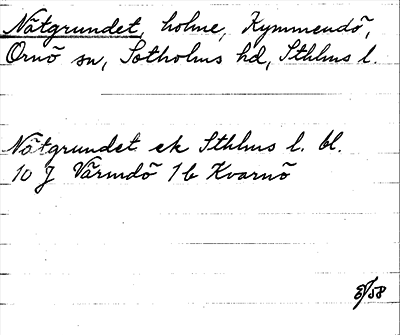 Nätgrundet, holme, Kymmendö,
Ornö sn, Sotholms hd, Sthlms l.
Nätgrundet ek Sthlms l. bl.
10 J Värmdö 1b Kvarnö